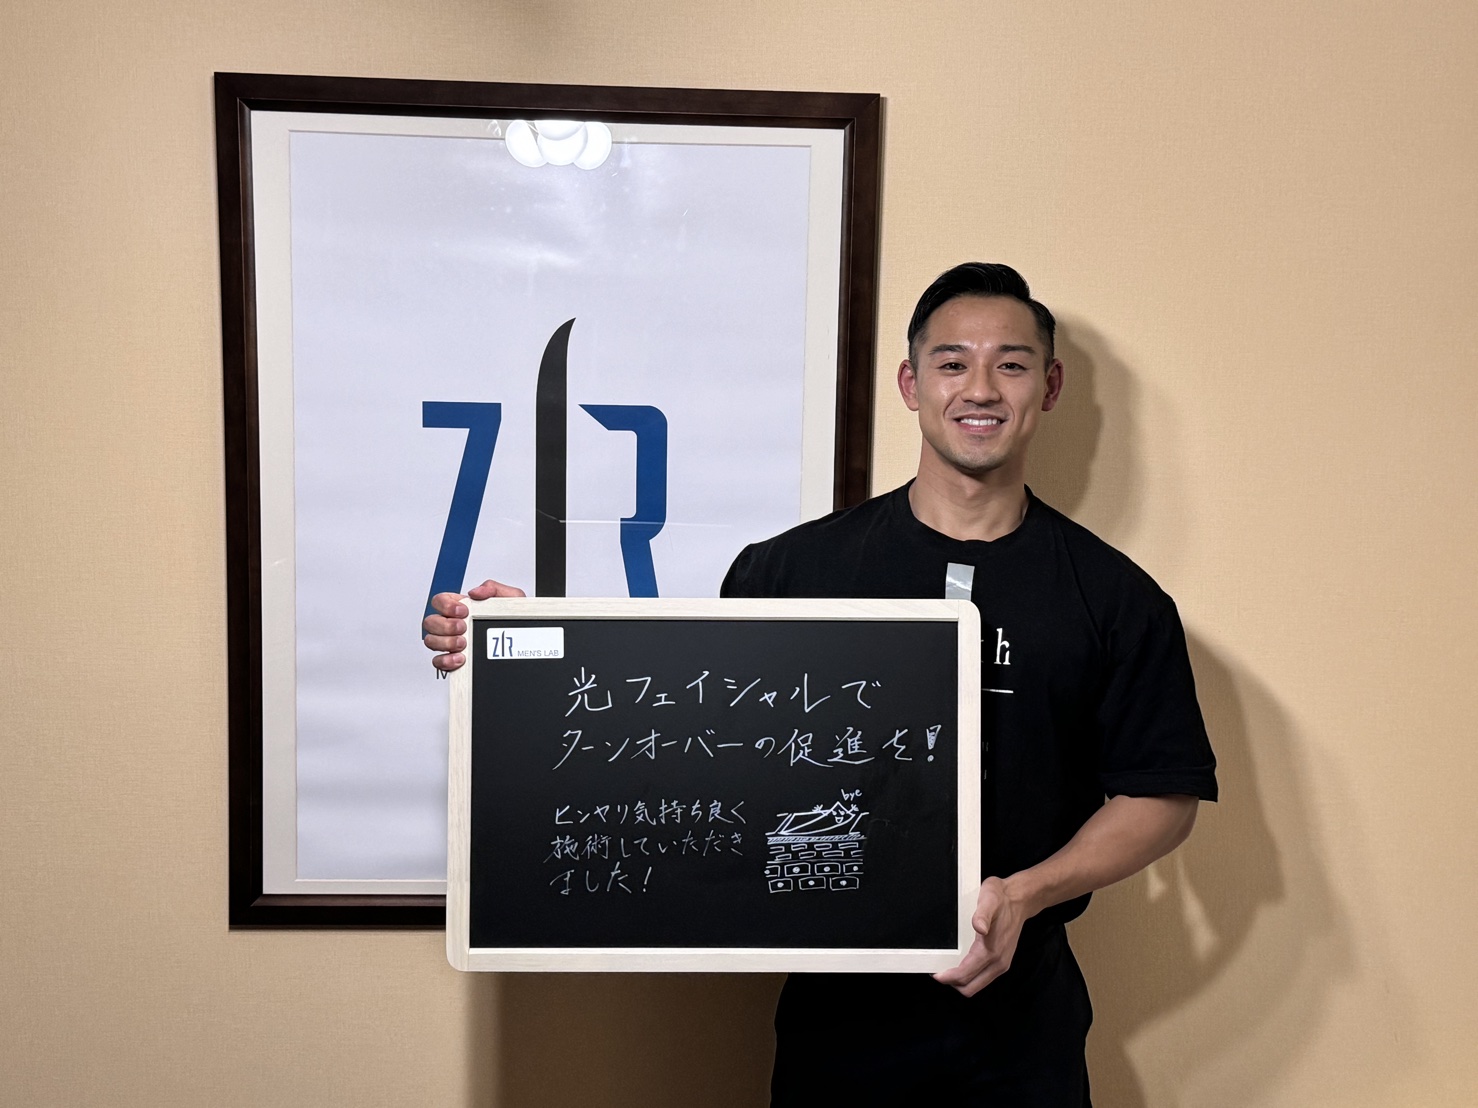 ZIR
ZIR MEN'S LAB
光フェイシャルで
ターンオーバーの促進を!
ヒンヤリ気持ち良く
施術していただき
ました!
bye
h